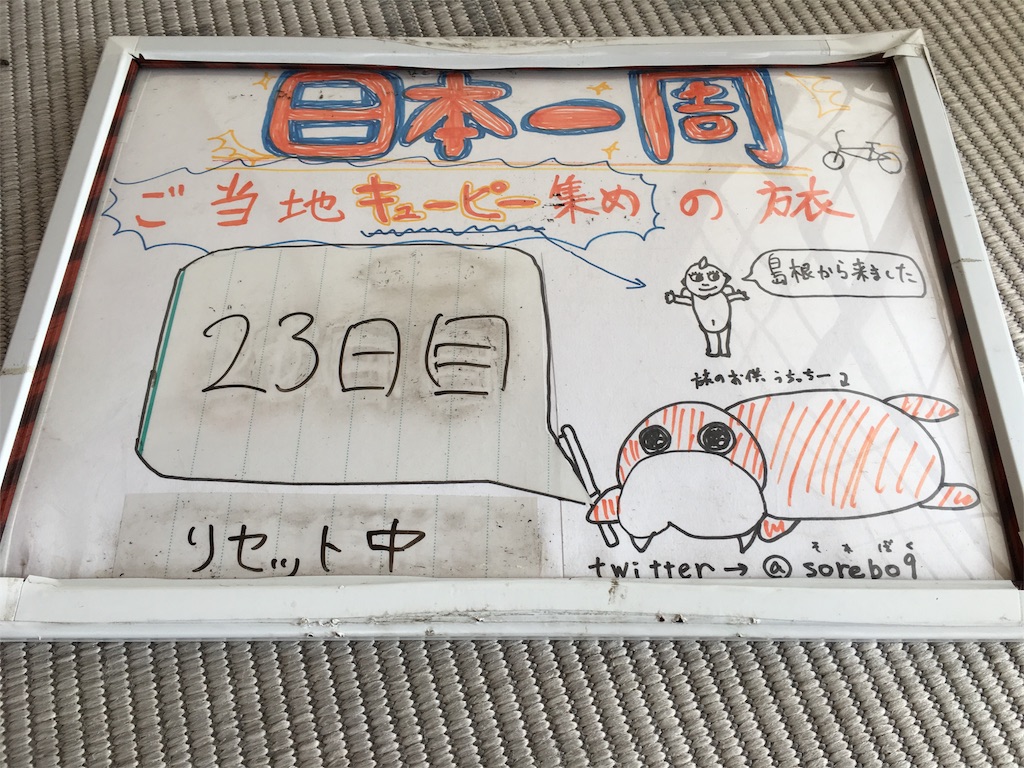 日本一周
ご当地キューピー集めの旅
島根から来ました
23日目
旅のお供 うちっちー
リセット中
それぼく
twitter→@sorebo9